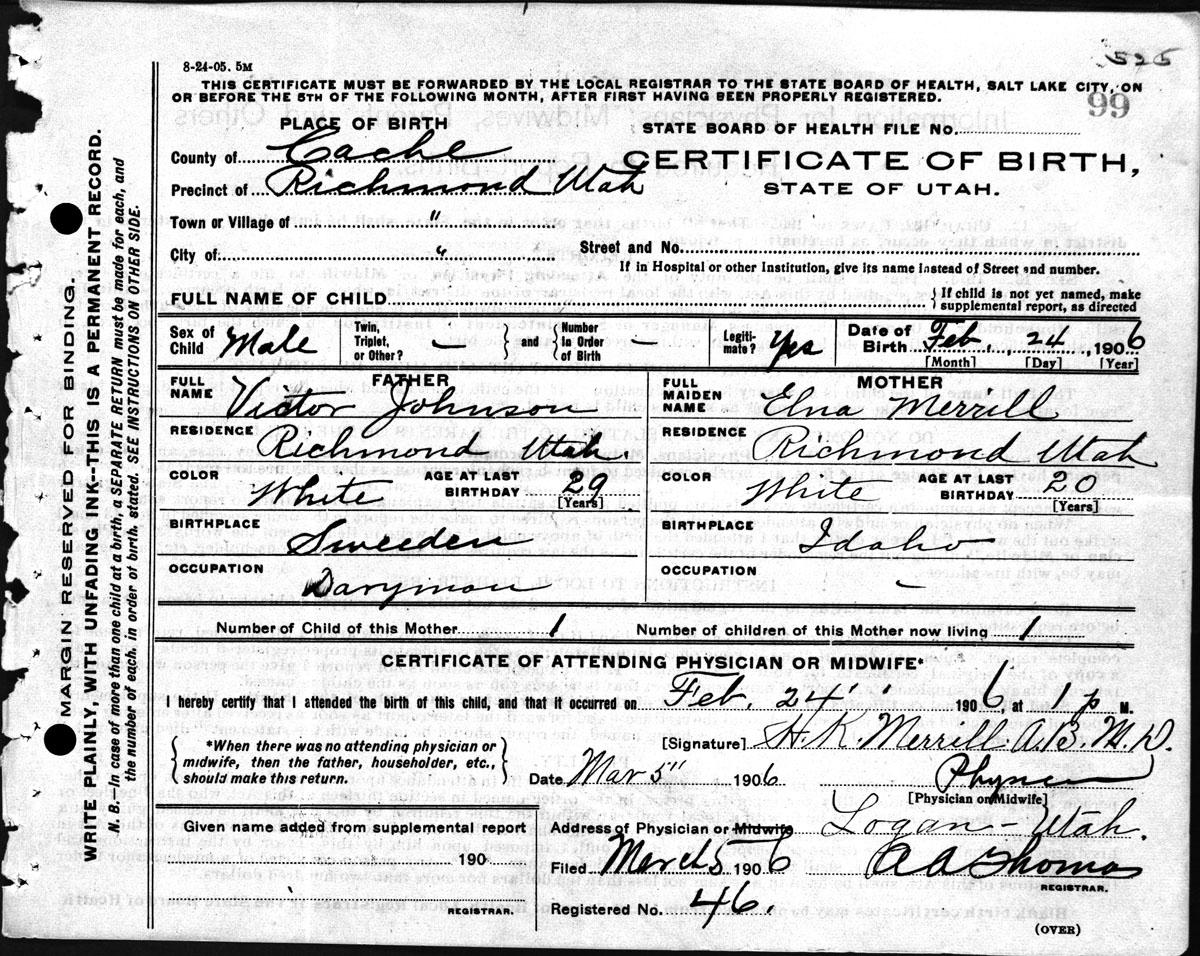 525
8-24-05. 5M
THIS CERTIFICATE MUST BE FORWARDED BY THE LOCAL REGISTRAR TO THE STATE BOARD OF HEALTH, SALT LAKE CITY, ON
OR BEFORE THE 5TH OF THE FOLLOWING MONTH, AFTER FIRST HAVING BEEN PROPERLY REGISTERED.
99
PLACE OF BIRTH
STATE BOARD OF HEALTH FILE No.
County of Cache
CERTIFICATE OF BIRTH,
Precinct of Richmond Utah
STATE OF UTAH.
Town or Village of "
City of "
Street and No.
If in Hospital or other Institution, give its name instead of Street and number.
FULL NAME OF CHILD
If child is not yet named, make
supplemental report, as directed
Sex of Child Male
Twin, Triplet, or Other? — and Number in Order of Birth —
Legiti-mate? Yes
Date of Birth Feb, 24 1906
[Month] [Day] [Year]
FATHER
FULL NAME Victor Johnson
MOTHER
FULL MAIDEN NAME Elna Merrill
RESIDENCE Richmond Utah.
RESIDENCE Richmond Utah
COLOR White AGE AT LAST BIRTHDAY 29 [Years]
COLOR White AGE AT LAST BIRTHDAY 20 [Years]
BIRTHPLACE Sweeden
BIRTHPLACE Idaho
OCCUPATION Daryman
OCCUPATION —
Number of Child of this Mother 1
Number of children of this Mother now living 1
CERTIFICATE OF ATTENDING PHYSICIAN OR MIDWIFE*
I hereby certify that I attended the birth of this child, and that it occurred on Feb. 24 1906, at 1 p M.
*When there was no attending physician or
midwife, then the father, householder, etc.,
should make this return.
[Signature] H. K. Merrill. A. B. M. D.
Date Mar 5" 1906
[Physician or Midwife]
Given name added from supplemental report
190
REGISTRAR.
Address of Physician or Midwife Logan - Utah.
Filed March 5 1906 A A Thomas
REGISTRAR.
Registered No. 46.
(OVER)
MARGIN RESERVED FOR BINDING.
WRITE PLAINLY, WITH UNFADING INK--THIS IS A PERMANENT RECORD.
N. B.—In case of more than one child at a birth, a SEPARATE RETURN must be made for each, and
the number of each. in order of birth. stated. SEE INSTRUCTIONS ON OTHER SIDE.